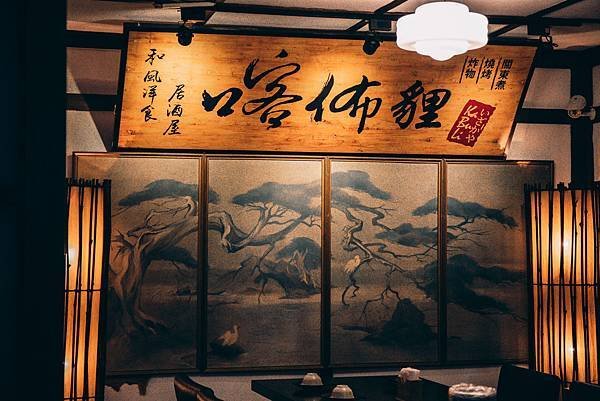 和風洋食
居酒屋
喀佈貍
關東煮
燒烤
炸物
いざかや
Ka
Bu
Li